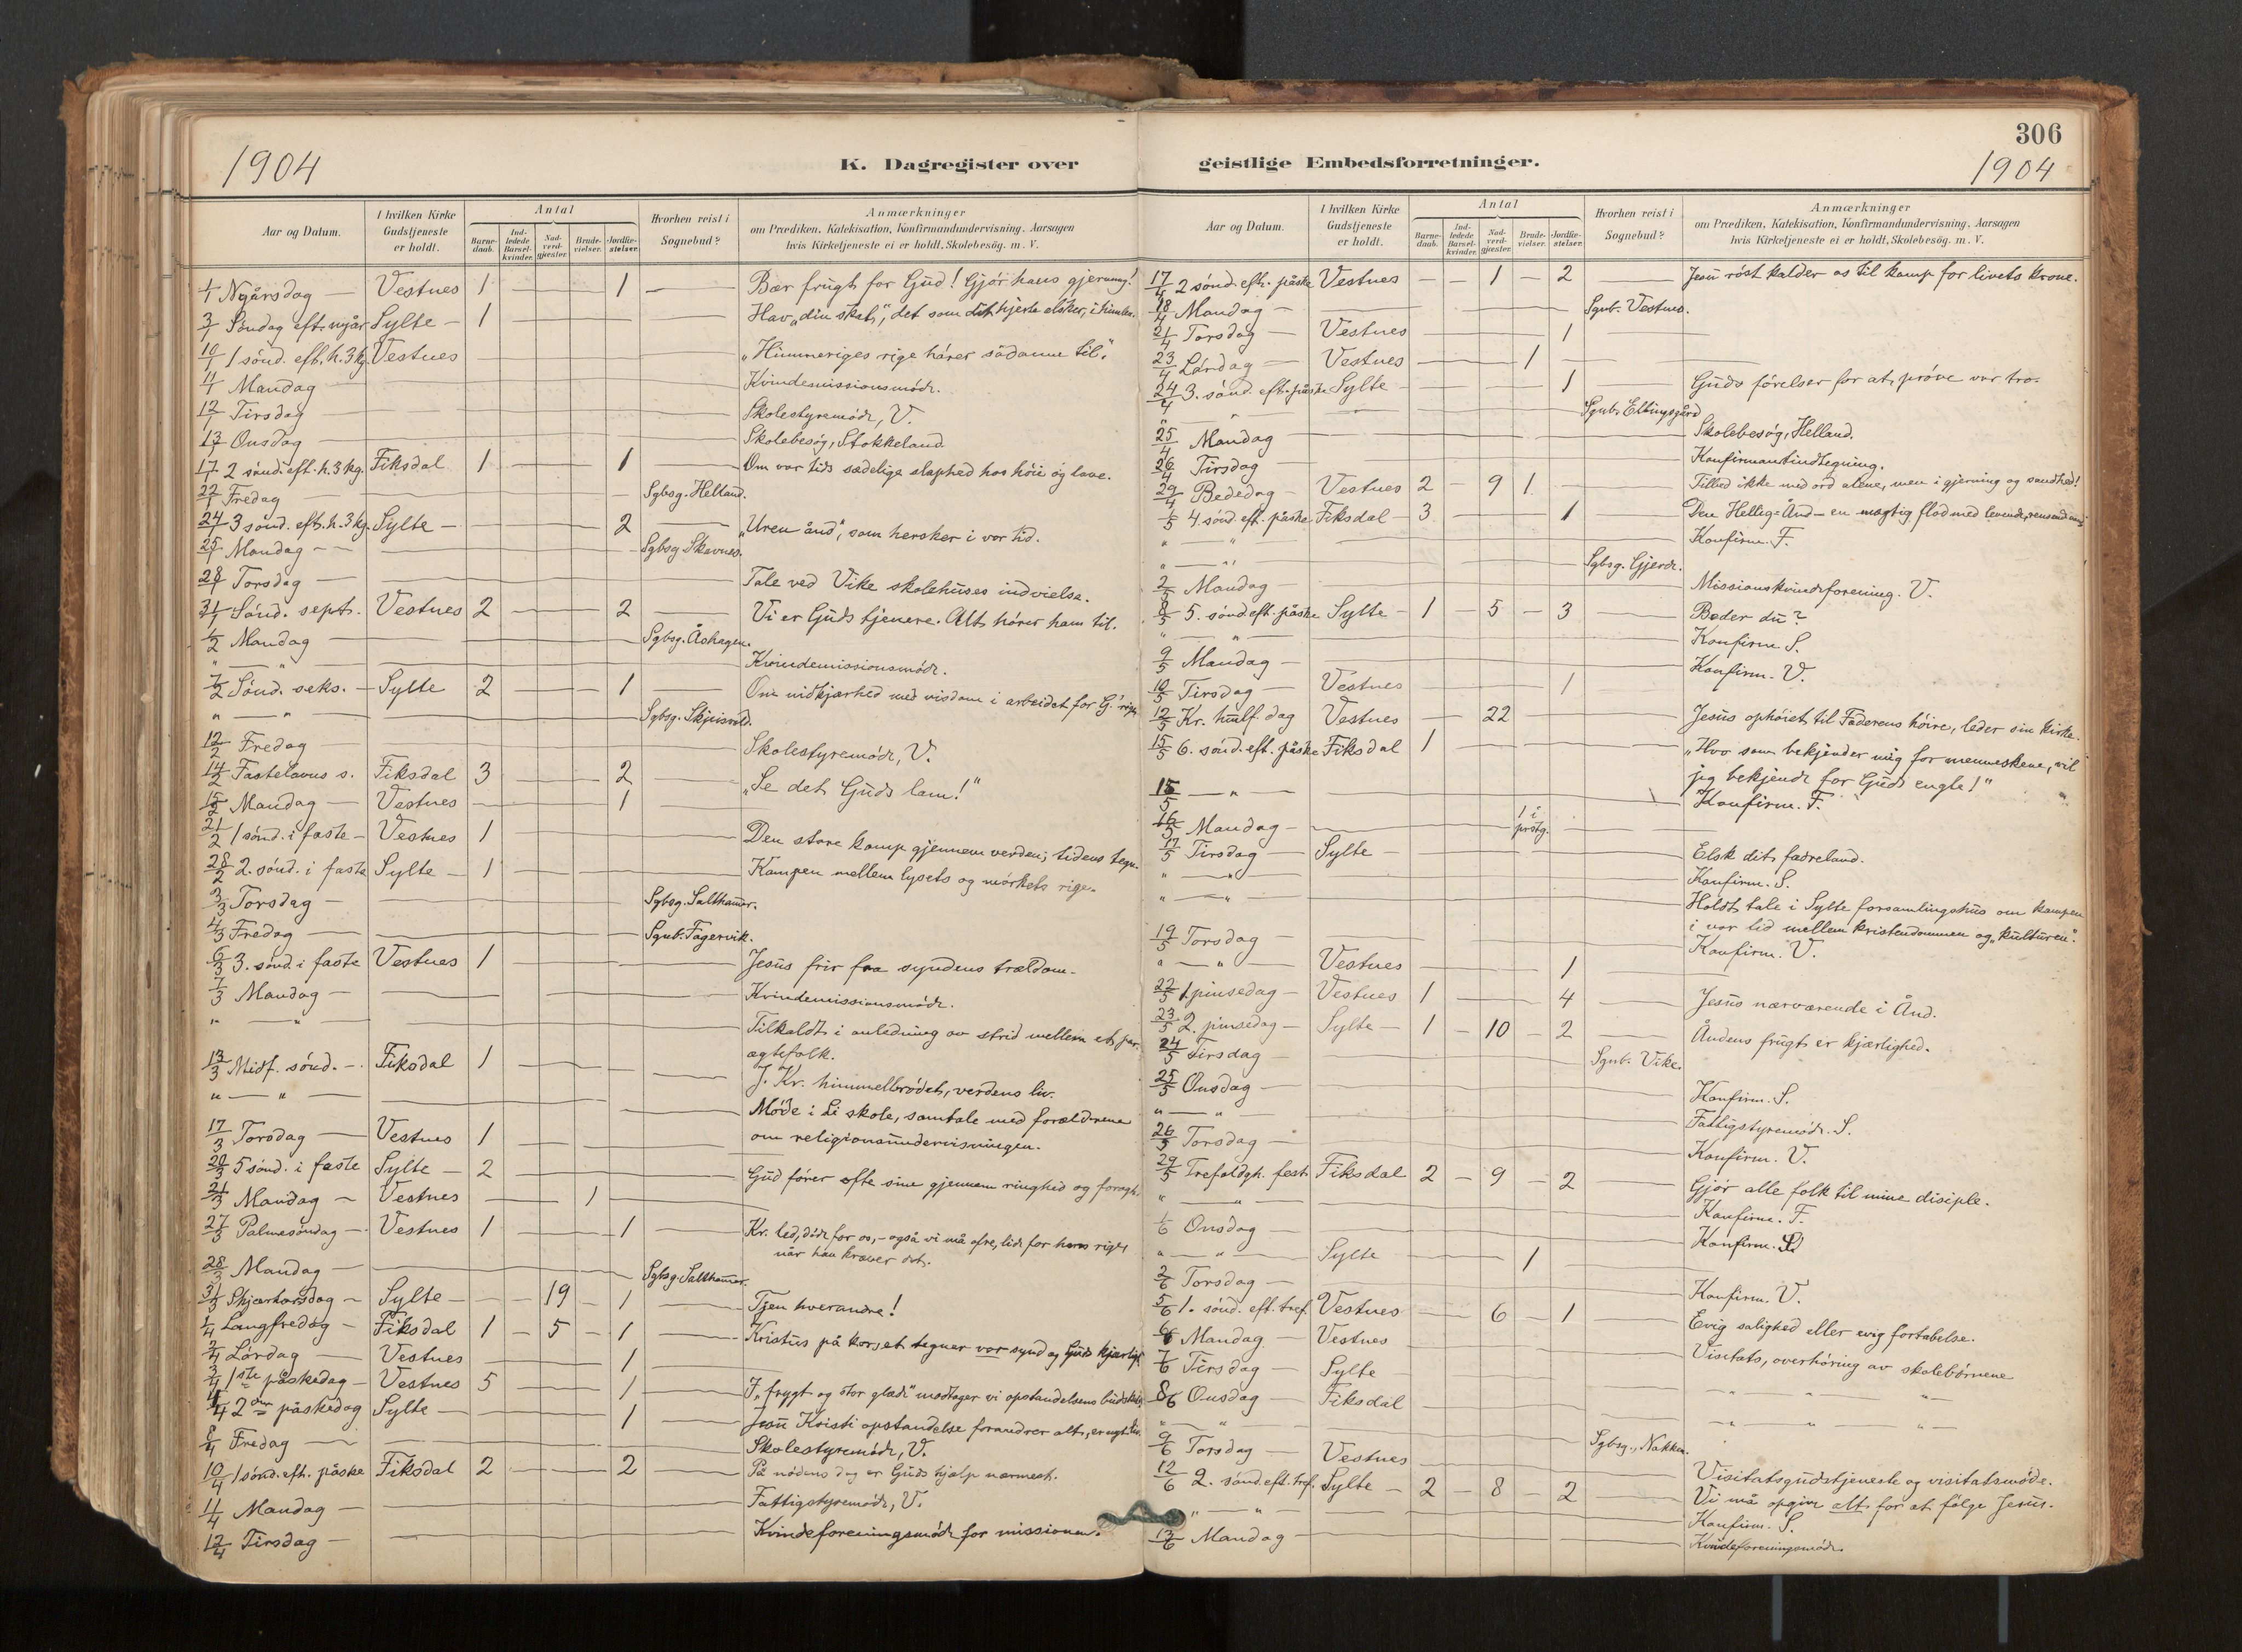 1904
K. Dagregister over
Aar og Datum.
I hvilken Kirke Gudstjeneste er holdt.
Antal
Barne-daab.
Ind-ledede Barsel-kvinder.
Nad-verd-gjæster.
Brude-vielser.
Jordfæ-stelser.
Hvorhen reist i Sognebud?
Anmærkninger
om Prædiken, Katekisation, Konfirmandundervisning. Aarsagen
hvis Kirketjeneste ei er holdt, Skolebesög. m. V.
1/1 Nyårsdag — Vestnes 1 — — — 1 — Bær frugt for Gud! Gjör hans gjerning!
3/1 Söndag eft. nyår Sylte — 1 — Hav „din skat", det som dit hjerte elsker, i himlen.
10/1 1 sönd. eft. h. 3 kg. Vestnes — „Himmeriges rige hörer sådanne til".
11/1 Mandag — Kvindemissionsmöde.
12/1 Tirsdag — Skolestyremöde, V.
13/1 Onsdag — Skolebesög, Stokkeland
17/1 2 sönd. eft. h. 3 kg. Fiksdal 1 — — — 1 — Om vor tids sædelige slaphed hos höie og lave.
22/1 Fredag — Sgbsg. Helland.
24/1 3 sönd. eft. h. 3 kg. Sylte — 2 — „Uren ånd", som hersker i vor tid.
25/1 Mandag — Sgbsg Skavnes.
28/1 Torsdag — Tale ved Vike skolehuses indvielse.
31/1 Sönd. sept. Vestnes 2 — — — 2 — Vi er Guds tjenere. Alt hörer ham til.
1/2 Mandag — Sgbsg. Åshagen.
" — " — Kvindemissionsmöde.
7/2 Sönd. seks. — Sylte 2 — 1 — Om nidkjærhed med visdom i arbeidet for G. rige
" — " — Sgbsg. Skjeisvold.
12/2 Fredag — Skolestyremöde, V.
14/2 Fastelavns s. Fiksdal 3 — — — 2 — „Se det Guds lam!"
15/2 Mandag — Vestnes — 1 —
21/2 1 sönd. i faste — Vestnes 1 — Den store kamp gjennem verden; tidens tegn.
28/2 2. sönd. i faste Sylte — 1 — Kampen mellem lysets og mörkets rige.
3/3 Torsdag — Sgbsg. Salthamer.
4/3 Fredag — Sgnb. Fagervik.
6/3 3. sönd. i faste Vestnes 1 — Jesus frir fra syndens trældom.
7/3 Mandag — Kvindemissionsmöde.
" — " — Tilkaldt i anledning av strid mellem et par
ægtefolk.
13/3 Midf. sönd. — Fiksdal 1 — J. Kr. himmelbrödet, verdens liv.
" — " — Möde i Li skole, samtale med forældrene
om religionsundervisningen.
17/3 Torsdag — Vestnes 1 —
20/3 5 sönd. i faste Sylte — 2 — Gud förer ofte sine gjennem ringhed og foragt.
21/3 Mandag — Vestnes — 1 —
27/3 Palmesöndag — Vestnes 1 — 1 — Kr. led, döde for os, – også vi må ofre, lide for hans rige,
når han kræver det.
28/3 Mandag — Sgbsg. Salthamer.
31/3 Skjærtorsdag — Sylte — 19 — 1 — Tjen hverandre!
1/4 Langfredag — Fiksdal 1 — 5 — 1 — Kristus på korset tegner vor synd og Guds kjærligh.
2/4 Lördag — Vestnes — 1 —
3/4 1ste påskedag — Vestnes 5 — 1 — I „frygt og stor glæde" modtager vi opstandelsens budskab
4/4 2den påskedag Sylte — 1 — Jesu Kristi opstandelse forandrer alt,
8/4 Fredag — Skolestyremöde, V.
10/4 1 sönd. eft. påske Fiksdal 2 — 2 — På nödens dag er Guds hjælp nærmest.
11/4 Mandag — Fattigstyremöde, V.
12/4 Tirsdag — Kvindeforeningsmöde for missionen.
306
geistlige Embedsforretninger.
1904
Aar og Datum.
I hvilken Kirke Gudstjeneste er holdt.
Antal
Barne-daab.
Ind-ledede Barsel-kvinder.
Nad-verd-gjæster.
Brude-vielser.
Jordfæ-stelser.
Hvorhen reist i Sognebud?
Anmærkninger
om Prædiken, Katekisation, Konfirmandundervisning. Aarsagen
hvis Kirketjeneste ei er holdt, Skolebesög. m. V.
17/4 2 sönd. eft. påske Vestnes — — 1 — 2 — Jesu röst kalder os til kamp for livets krone.
18/4 Mandag — Sgnb. Vestnes.
21/4 Torsdag — Vestnes — 1 —
23/4 Lördag — Vestnes — 1 —
24/4 3. sönd. eft. påske Sylte — 1 — Guds förelser for at pröve vor tro.
" — " — Sgnb. Ellingsgård
25/4 Mandag — Skolebesög, Helland.
26/4 Tirsdag — Konfirmantindtegning.
29/4 Bededag — Vestnes 2 — 9 1 — Tilbed ikke med ord alene, men i gjerning og sandhed!
1/5 4 sönd. eft. påske Fiksdal — 3 — 1 — Den Hellig-Ånd – en mægtig flod med levende,
" — " — Konfirm. F.
" — " — Sgbsg. Gjerde.
2/5 Mandag — Missionskvindeforening. V.
8/5 5. sönd eft. påske Sylte — 1 — 5 — 3 — Beder du?
" — " — Konfirm S.
9/5 Mandag — Konfirm. V.
10/5 Tirsdag — Vestnes — 1
12/5 Kr. himlf. dag Vestnes — 22 — Jesus ophöiet til Faderens höire, leder sin kirke.
15/5 6. sönd. eft. påske Fiksdal 1 — „Hvo som bekjender mig for menneskene, vil
jeg bekjende for Guds engle!"
15/5 — " — Konfirm. F.
16/5 Mandag — 1 i prstg. —
17/5 Tirsdag — Sylte — Elsk dit fædreland.
" — " — Konfirm. S.
" — " — Holdt tale i Sylte forsamlingshus om kampen
i vor tid mellem kristendommen og „kulturen".
19/5 Torsdag — Konfirm. V.
" — " — Vestnes — 1
22/5 1. pinsedag — Vestnes 1 — 4 — Jesus nærværende i Ånd.
23/5 2. pinsedag — Sylte — 1 — 10 — 2 — Åndens frugt er kjærlighed.
24/5 Tirsdag — Sgnb. Vike.
25/5 Onsdag — Konfirm. S.
" — " — Fattigstyremöde. S.
26/5 Torsdag — Konfirm. V.
29/5 Trefoldgh. fest Fiksdal 2 — 9 — 2 — Gjör alle folk til mine disiple.
" — " — Konfirm. F.
1/6 Onsdag — Konfirm. S
" — " — Sylte — 1 —
2/6 Torsdag — Konfirm. V.
5/6 1. sönd. eft. tref. Vestnes — 6 — 1 — Evig salighed eller evig fortabelse.
6/6 Mandag — Vestnes — Visitats, overhöring av skolebörnene
7/6 Tirsdag — Sylte — " — " — " —
8/6 Onsdag — Fiksdal — " — " — " —
" — " — Sgbsg., Nakken.
9/6 Torsdag — Vestnes — Visitatsgudstjeneste og visitatsmöde.
12/6 2. sönd. eft. tref. Sylte — 2 — 8 — 2 — Vi må opgive alt for at fölge Jesus.
" — " — Konfirm. S.
13/6 Mandag — Kvindeforeningsmöde.